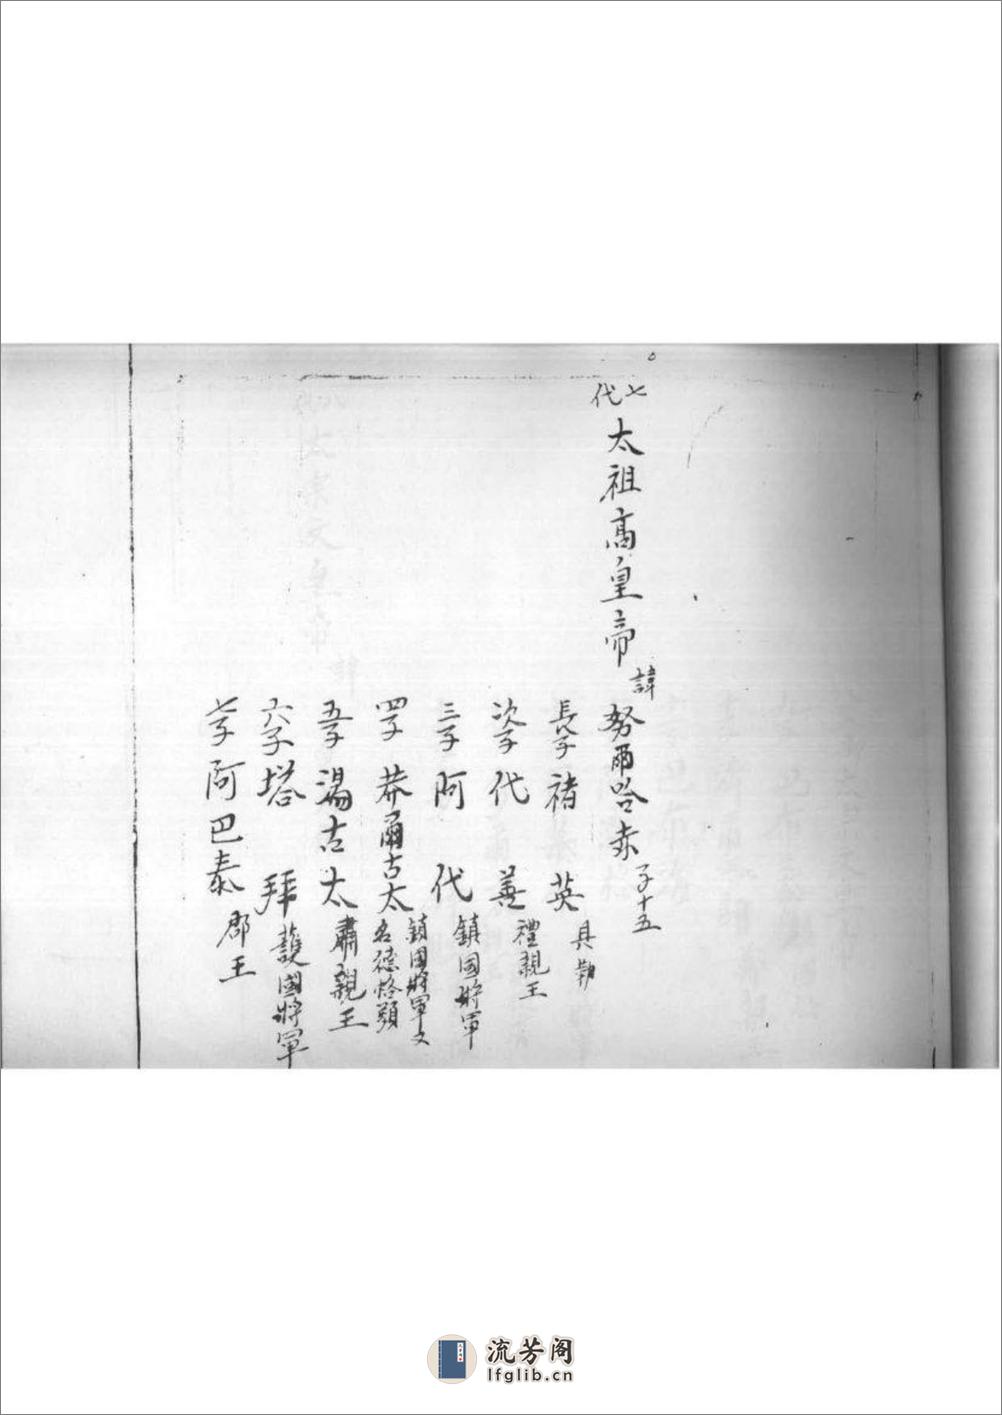 七代
太祖高皇帝 諱努爾哈赤 子十五
長子 褚英 具勒
次子 代善 禮親王
三子 阿代 鎮國將軍
四子 莽爾古太 鎮國將軍又名德格類
五子 湯古太 肅親王
六子 塔拜 護國將軍
七子 阿巴泰 郡王
流芳阁
lfglib.cn